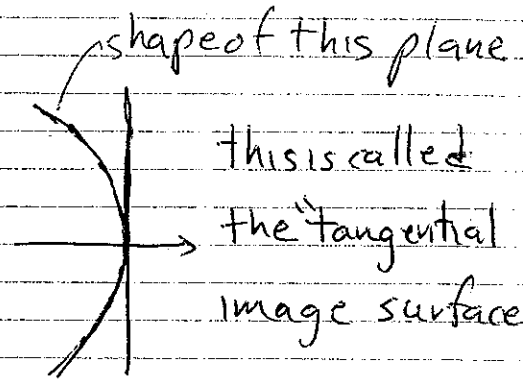 shape of this plane
this is called
the "tangential
image surface